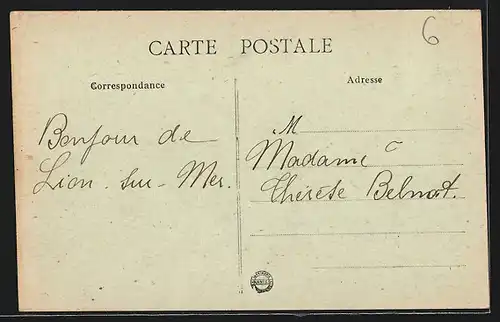 6
CARTE POSTALE
Correspondance
Adresse
Bonjour de
Lion-sur-Mer.
M
Madame
Thérèse